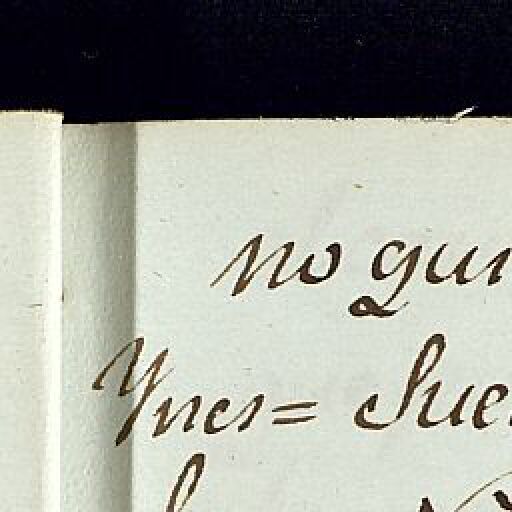 no qui
Ynes= Sue